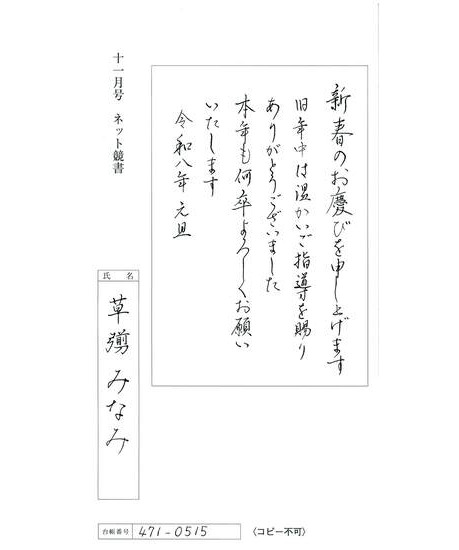 新春のお慶びを申し上げます
旧年中は温かいご指導を賜り
ありがとうございました
本年も何卒よろしくお願い
いたします
令和八年 元旦
十一月号 ネット競書
氏名
草彅 みなみ
台帳番号 471-0515
〈コピー不可〉